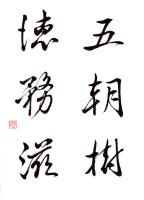 五朝樹
德務滋